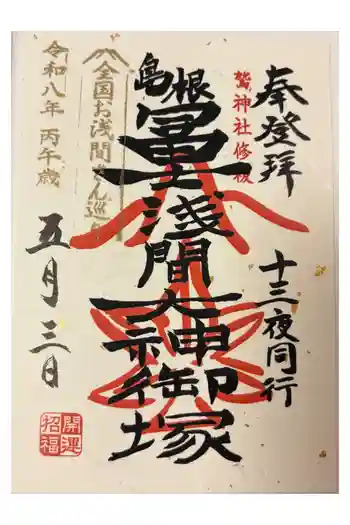 奉登拝
十三夜同行
鷲神社修復
島根
冨士浅間大神御塚
全国お浅間さん巡り
令和八年 丙午歳
五月三日
開運
招福